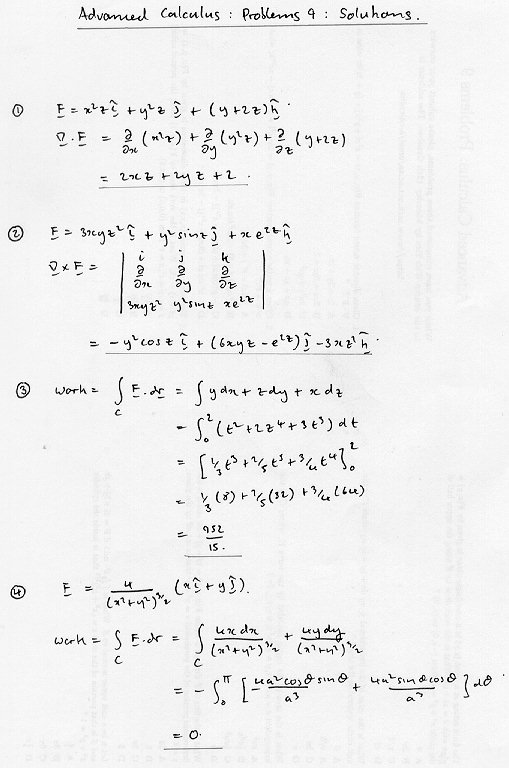 Advanced Calculus : Problems 9 : Solutions.
① F = x²z î + y²z ĵ + (y+2z) k̂.
∇.F = ∂/∂x (x²z) + ∂/∂y (y²z) + ∂/∂z (y+2z)
= 2xz + 2yz + 2.
② F = 3xyz² î + y² sin z ĵ + x e^{2z} k̂
∇×F = | i j k
∂/∂x ∂/∂y ∂/∂z
3xyz² y² sin z xe^{2z} |
= -y² cos z î + (6xyz - e^{2z}) ĵ - 3xz² k̂.
③ Work = ∫_C F.dr = ∫ y dx + z dy + x dz
= ∫_0^2 (t² + 2t⁴ + 3t³) dt
= [1/3 t³ + 2/5 t⁵ + 3/4 t⁴]_0^2
= 1/3 (8) + 2/5 (32) + 3/4 (64)
= 952/15.
④ F = 4/(x²+y²)^{3/2} (x î + y ĵ).
Work = ∫_C F.dr = ∫_C 4x dx/(x²+y²)^{3/2} + 4y dy/(x²+y²)^{3/2}
= - ∫_0^π [ -4a² cos θ sin θ/a³ + 4a² sin θ cos θ/a³ ] dθ.
= 0.